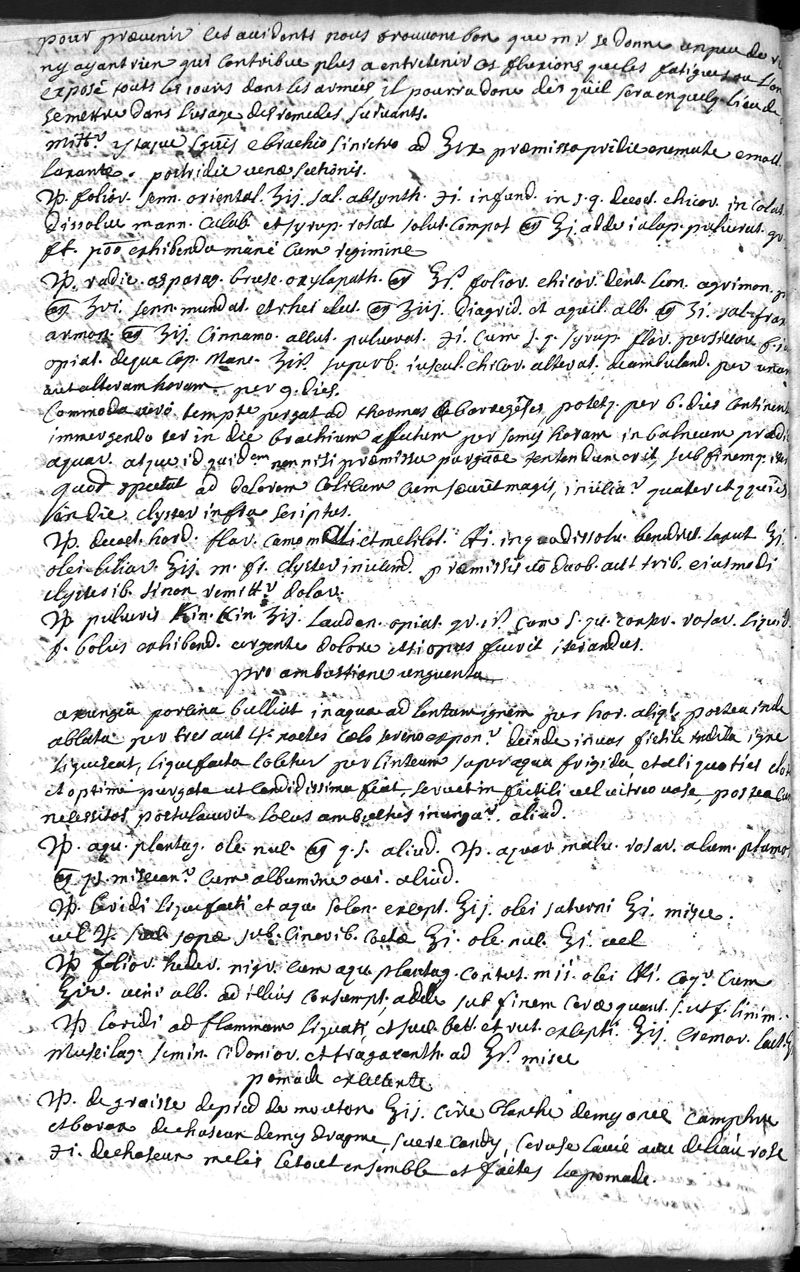 pour prævenir les accidents nous trouvons bon que mr se donne un peu de
ny ayant rien qui contribue plus a entretenir ces fluxions que les fatigues ou l'on
exposé touts les jours dans les armées il pourra donc dés qu'il sera en quelq lieu de
se mettre dans l'usage des remedes suivants.
mittr ytaque sguis e brachio sinistro ad ℥ix præmisso pridie enemate emoll.
laxante. postridie venæ sectionis.
℞. folior. senn. oriental. ʒij. sal. absynth. ʒi infund. in s.q. decoct. chicor. in colat.
dissolve mann. calab. et syrup. rosat. solut. compos. aa ℥j. adde ialap. pulverat. gr.
ft. poo exhibenda mane cum regimine
℞. radic. asparag. brusc. oxylapath. aa ℥ß. folior. chicor. dent. leon. agrimon.
aa ʒvi. senn. mundat. et rhei elect. aa ʒiij. diagrid. et aquil. alb. aa ʒi. sal. frax
armon. aa ʒij. cinnamo. allut. pulverat. ʒi. cum s.q. syrup. flor. persicor. f.
opiat. de qua cap. mane. ʒiß superb. iuscul. chicor. alterat. deambuland. per unam
aut alteram horam per 9. dies.
Commodo vero tempore pergat ad thermas de barreges, per 6. dies continent
immergendo ter in die brachium affectum per semis horam in balneum prædi
aquar. atque id quidem non nisi præmissa purgaoe tentandum erit, sub finem
quod spectat ad dolorem colicum cum sæviet magis, iniiciar quater
in die clyster infra scriptus.
℞. decoct. hord. flor. camomilli et melilot. in qua dissolv. benedict. laxat. ℥j.
olei liliar. ℥ij. m. ft. clyster iniiciend. præmissis duob. aut trib. eiusmodi
clysterib. si non remittr dolor.
℞ pulveris Kin. Kin. ʒij. laudan. opiat. gr. iß. cum s. qu. conserv. rosar. liquid.
f. bolus exhibend. urgente dolore et si opus fuerit iterandus.
pro ambustione unguenta
axungia porcina bulliat in aqua ad lentum ignem per hor. aliqt. postea inde
ablata per tres aut 4r. noctes cælo sereno exponr. deinde in vas fictile indita igne
liquescat, liquefacta coletur per linteum super aqua frigida et aliquoties
et optime purgata ut candidissima fiat, servet in fictili vel vitreo vase, postea cum
necessitas postulaverit locus ambustus inungar. aliud.
℞. aqu. plantag. ole. nul. aa q.s. aliud. ℞. aquar. malv. rosar. alum. plumos
aa miscean. cum albumine ovi. aliud.
℞. lardi liquefacti et aqu. solan. except. ℥ij. olei saturni ℥i. misce.
vel ℞. cepæ sub. cinerib. coctæ ℥i. ole. nul. ℥i. vel
℞ folior. heder. nigr. cum aqu. plantag. contus. mii. olei coqr. cum
vini alb. ad illius consumpt; adde sub finem ceræ quant. s. ut f. linim.
℞ lardi ad flammam liquati, et succ. bet. et rut. excepti. ℥ij. cremor. lact.
mucilag. semin. cidonior. et tragacanth. ad ℥ß. misce
pomade excellente
℞. de graisse de pied de mouton ℥ij. cire blanche demy once camphre
et borax de chascun demy dragme, sucre candy, ceruse lavée avec de l'eau rose
ʒi. de chascun meléz le tout ensemble et faêtes la pomade.